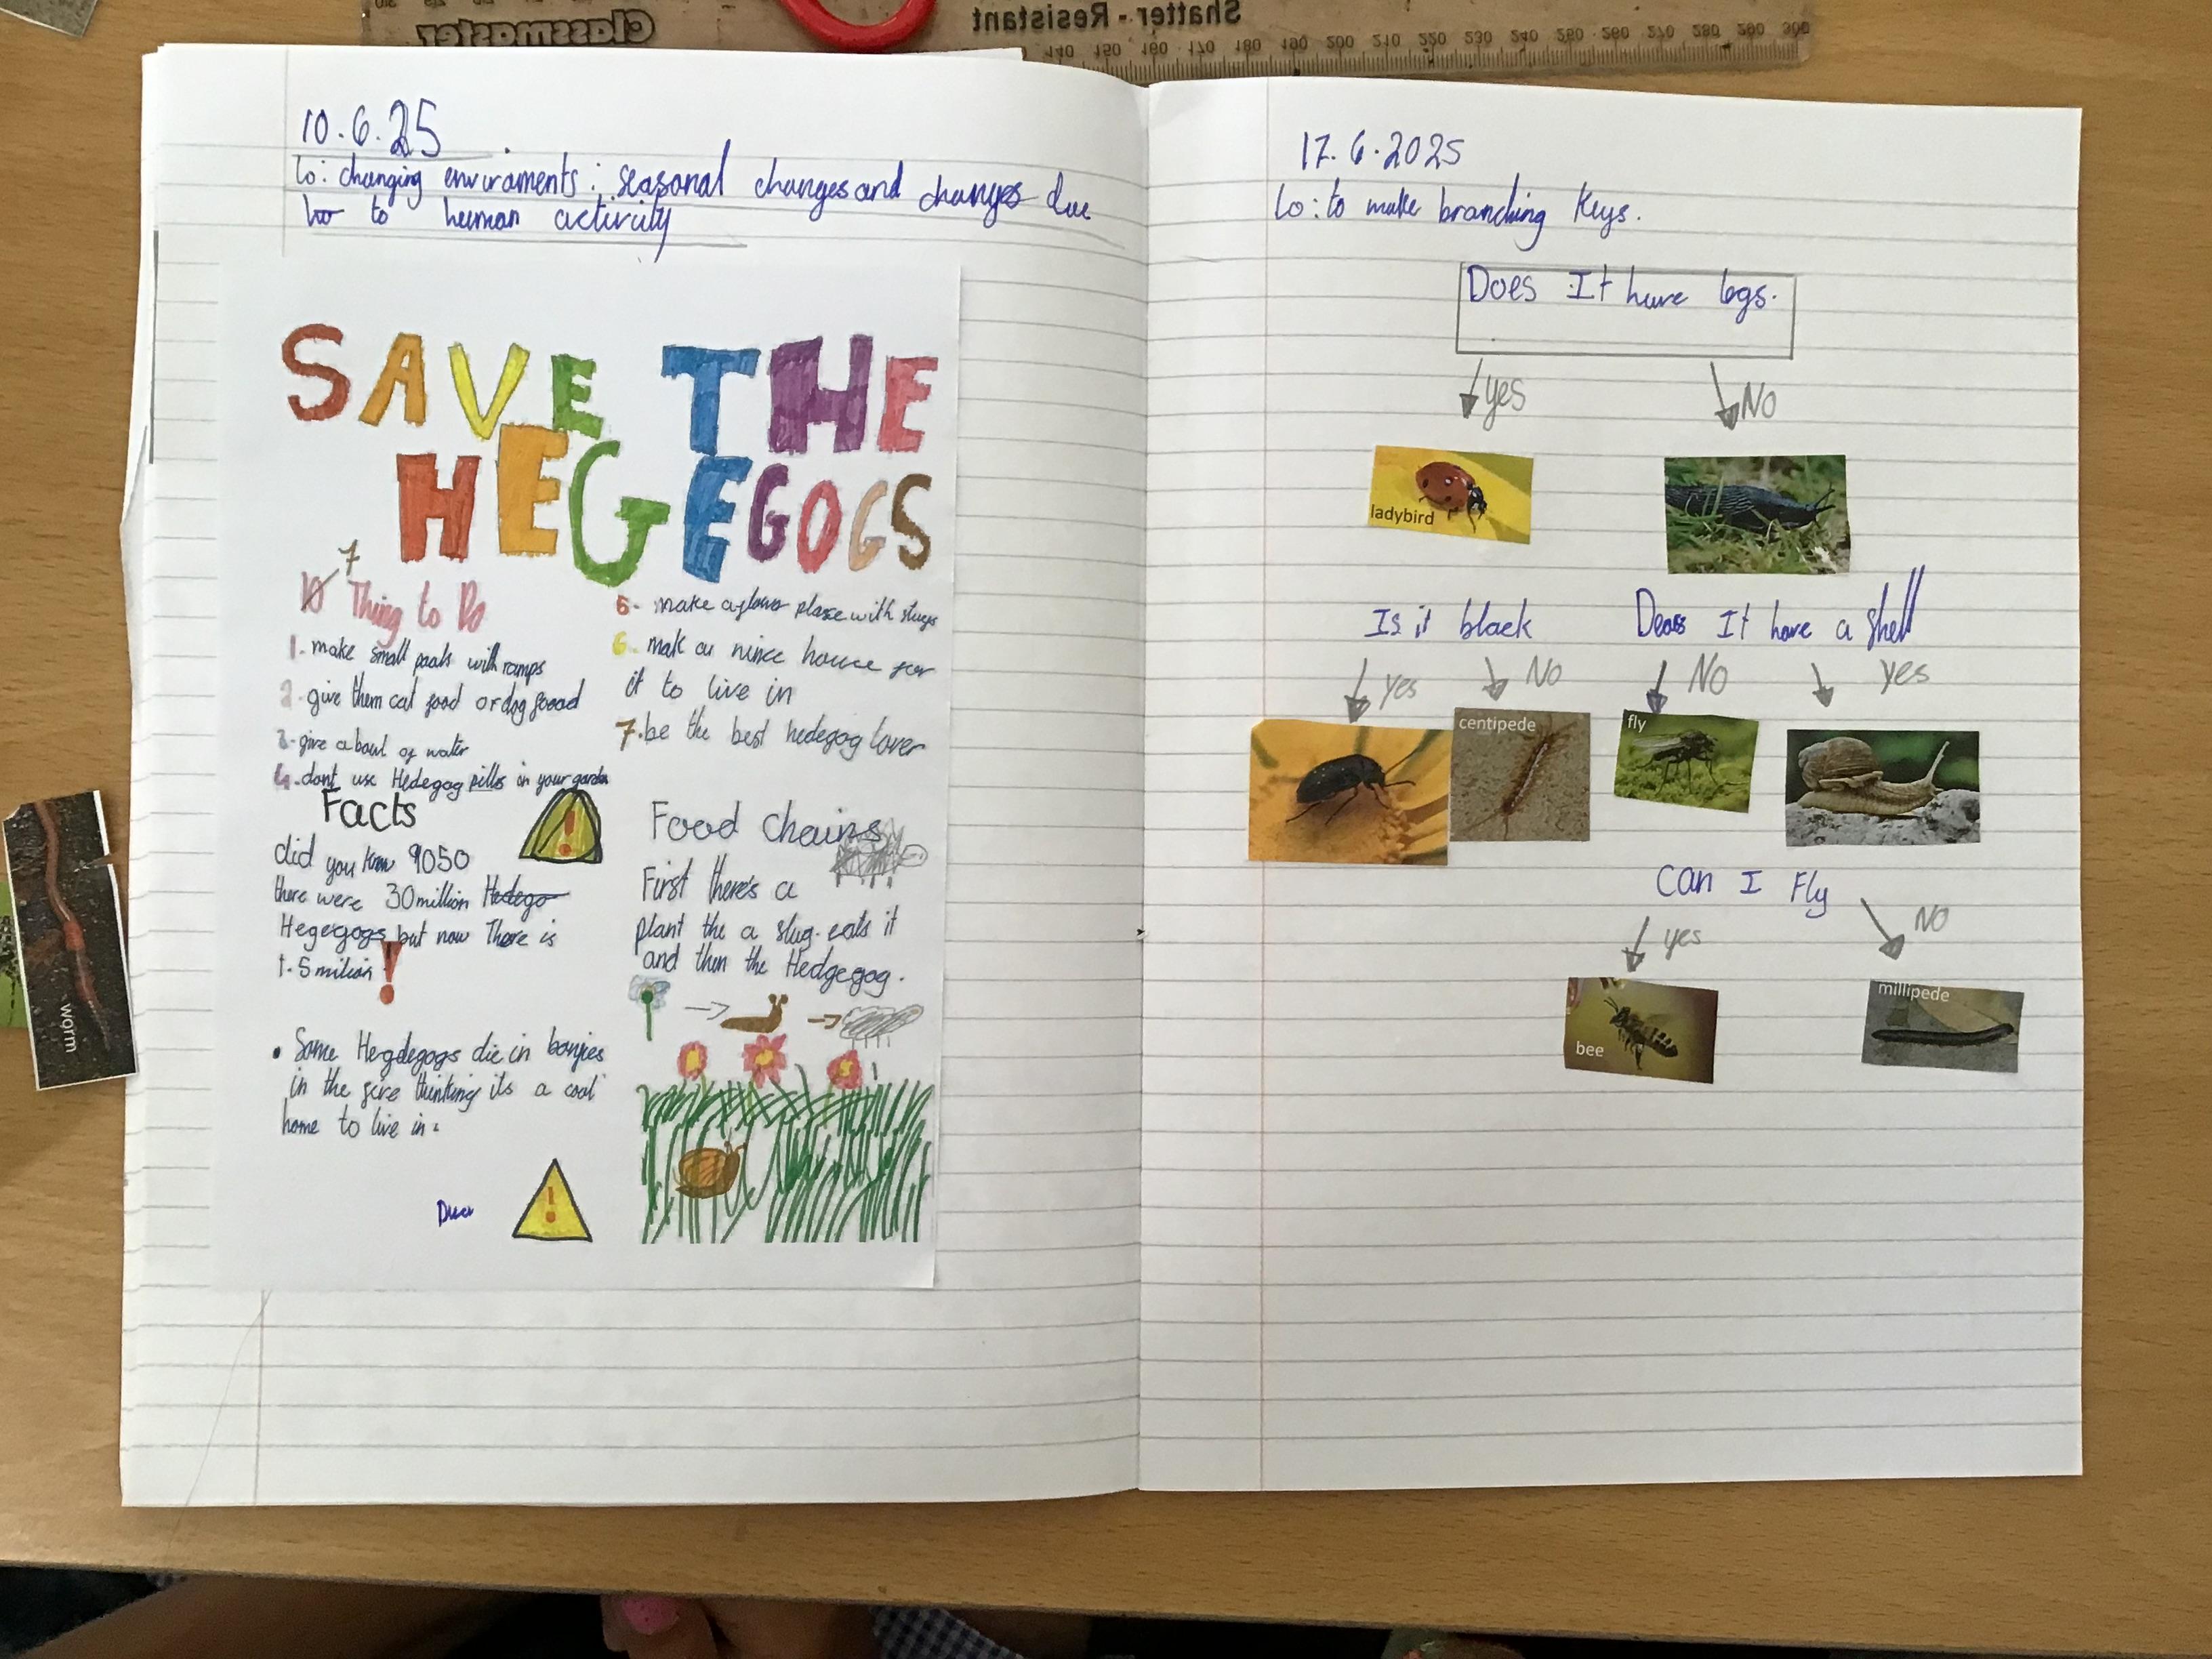 Classmaster
Shatter-Resistant
140 150 160 170 180 190 200 210 220 230 240 250 260 270 280 290 300
10.6.25
Lo: changing enviraments: seasonal changes and changes due
to human activity
SAVE THE
HEGEGOGS
7
10 Thing to Do
1. make small pools with ramps
2. give them cat food or dog foood
3. give a bowl of water
4. dont use Hedegog pills in your garden
6. make a place with slugs
6. mak a nince house for
it to live in
7. be the best hedegog lover
Facts
did you know 9050
there were 30 million Hedego
Hegegogs but now There is
1.5 milion !
• Some Hergdegogs die in
in the fire thinking its a cool
home to live in.
!
!
Food chains
First there's a
plant the a slug eats it
and then the Hedgegog.
worm
17.6.2025
Lo: to make branching keys.
Does It have legs.
yes No
ladybird
Is it black
yes No
centipede
Deos It have a shell
No yes
fly
Can I Fly
yes No
bee
millipede